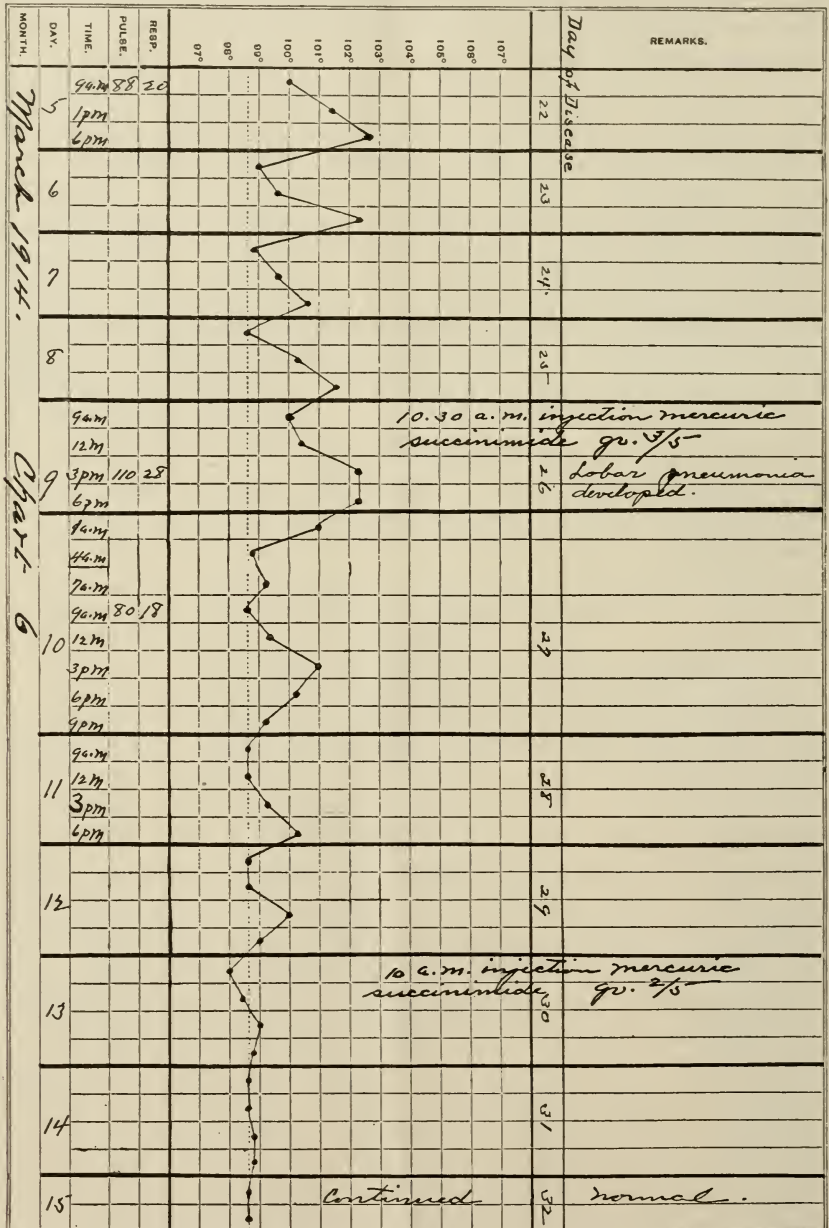 REMARKS.
Day of Disease
107°
106°
105°
104°
103°
102°
101°
100°
99°
98°
97°
RESP.
PULSE.
TIME.
DAY.
MONTH.
March 1914.
Chart 6
5
9a.m 88 20
1pm
6pm
22
6
23
7
24
8
25
9
9a.m
12m
3pm 110 28
6pm
26
10.30 a.m. injection mercuric
succinimide gr. 3/5
Lobar pneumonia
developed.
10
4a.m
7a.m
9a.m 80 18
12m
3pm
6pm
9pm
27
11
9a.m
12m
3pm
6pm
28
12
29
13
10 a.m. injection mercuric
succinimide gr. 2/5
30
14
31
15
32
Continued normal.